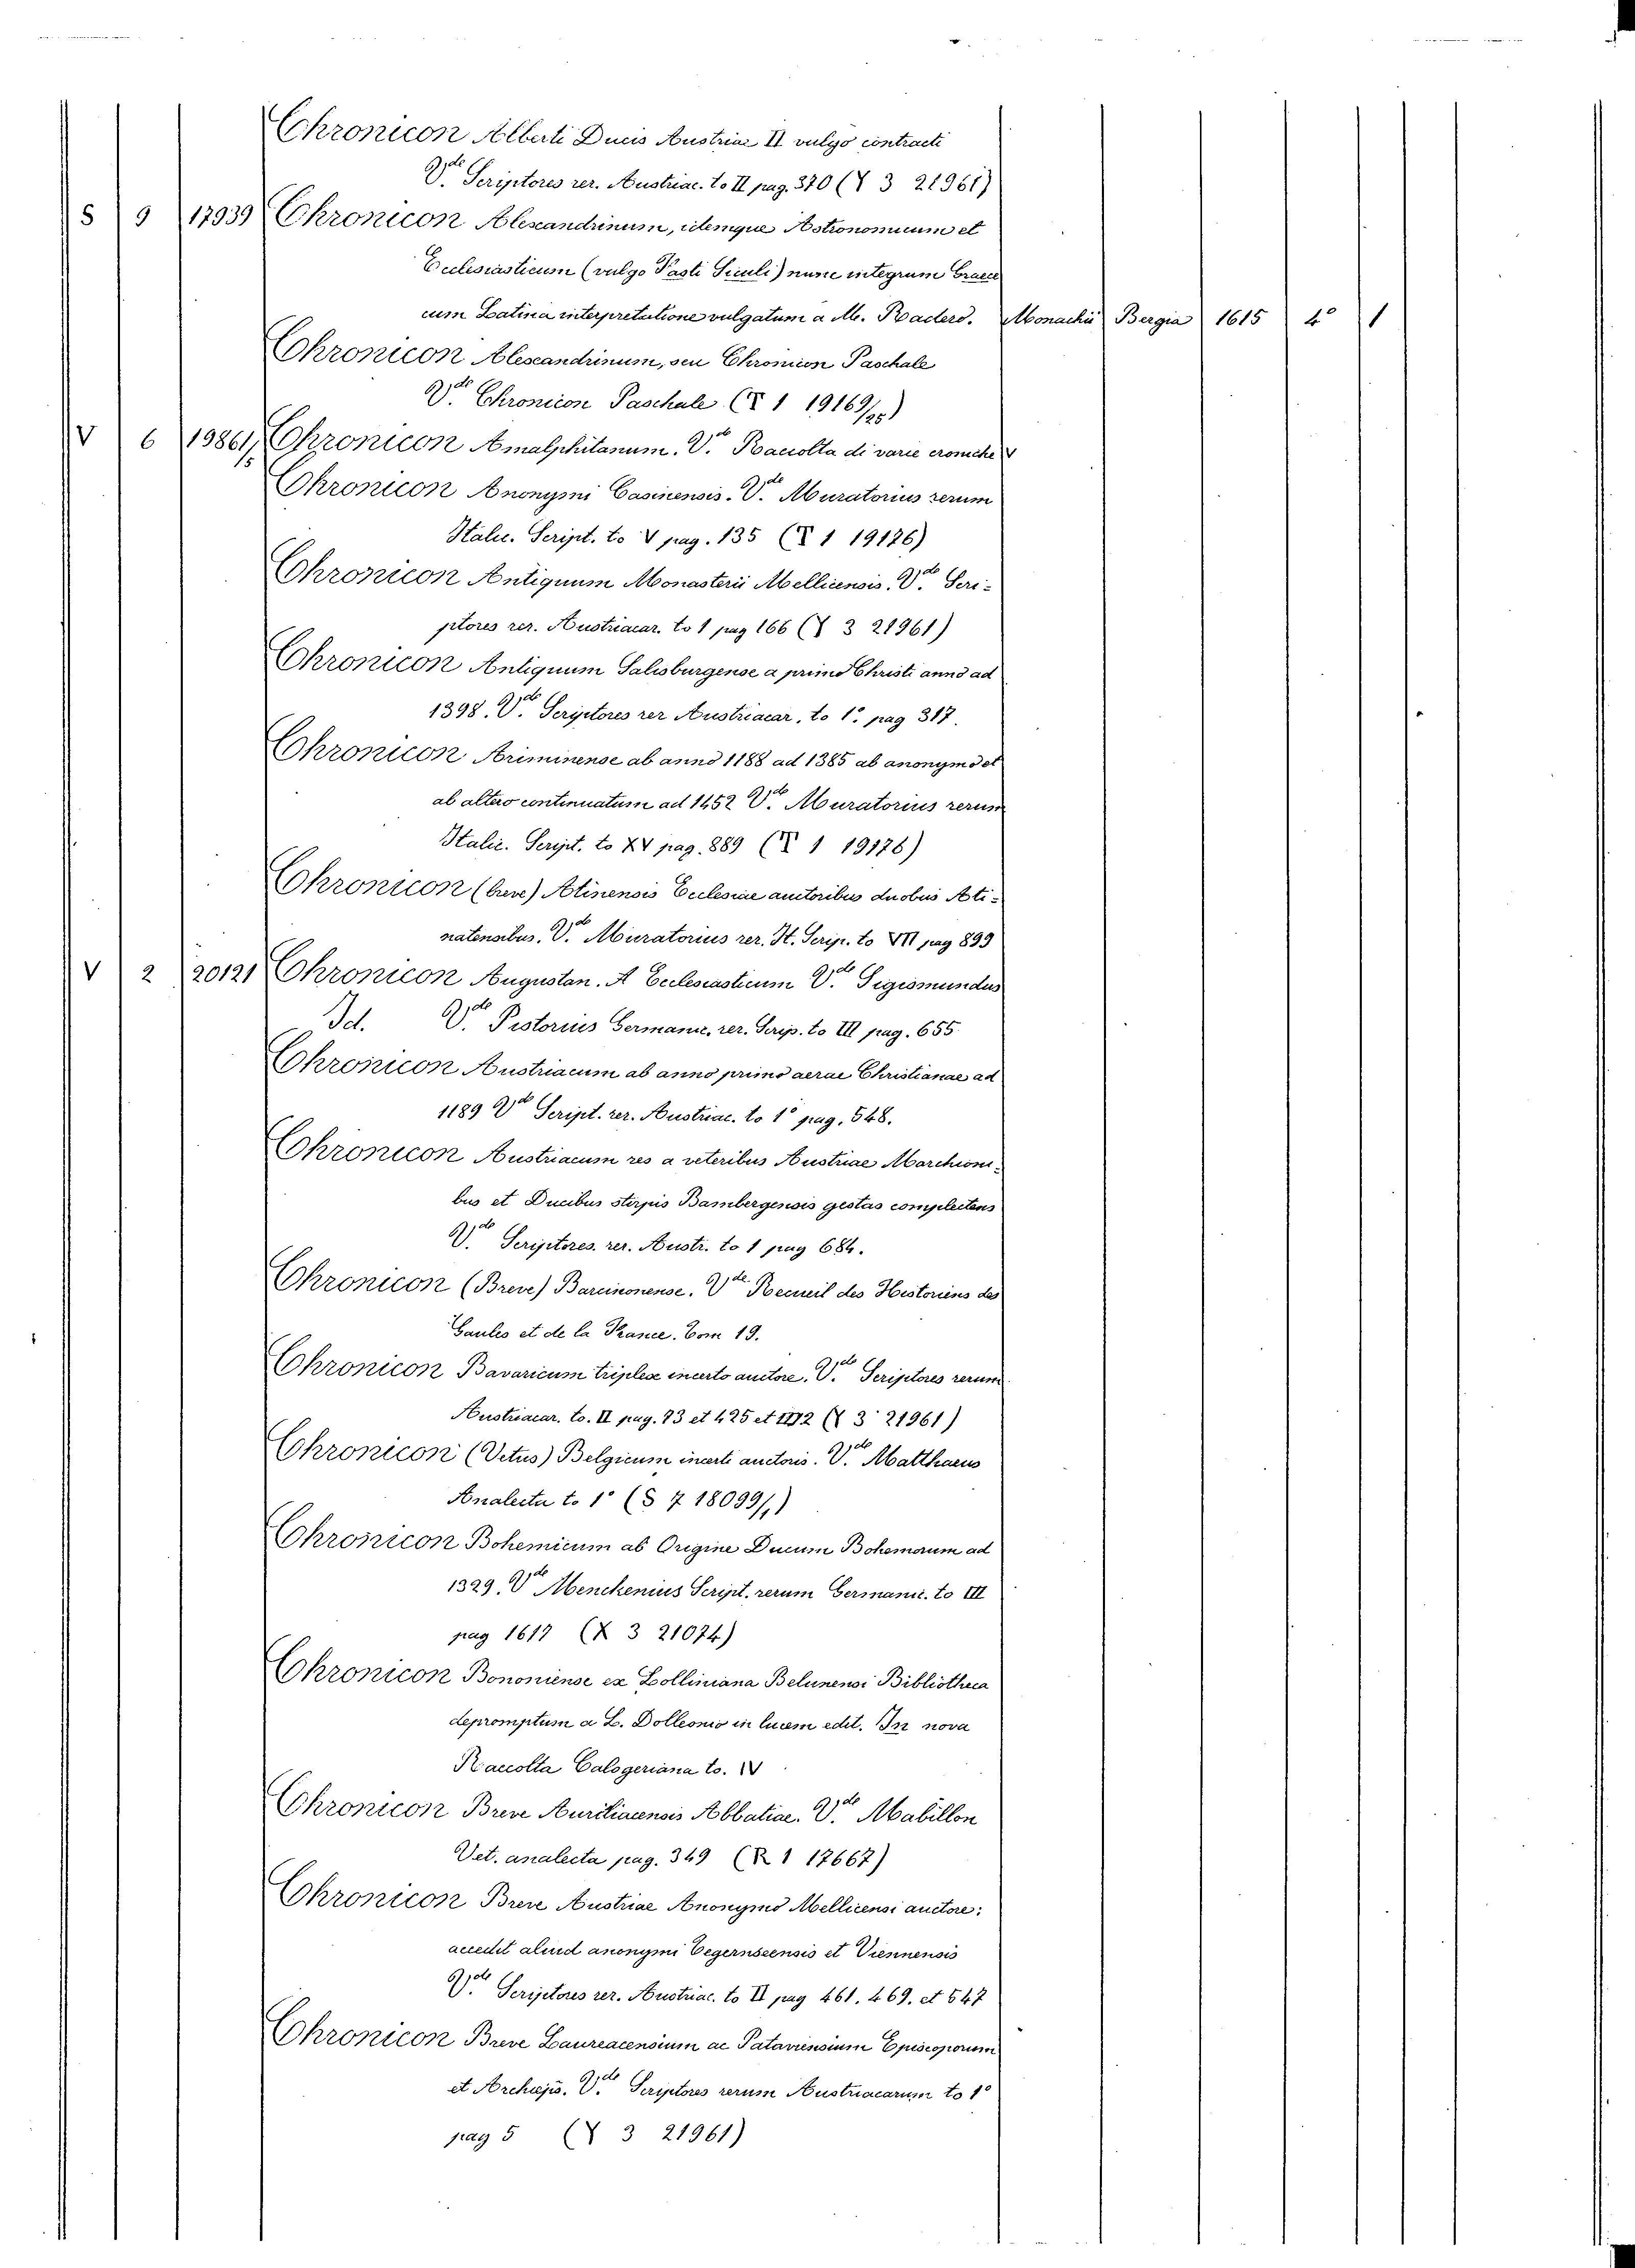 Chronicon Alberti Ducis Austriae II vulgo contracti
V.de Scriptores rer. Austriac. to II pag. 370 (Y 3 21961)
S 9 17939 Chronicon Alexandrinum, idemque Astronomicum et
Ecclesiasticum (vulgo Fasti Siculi) nunc integrum Graece
cum Latina interpretatione vulgatum a M. Radero. Monachii Bergia 1615 4° 1
Chronicon Alexandrinum, seu Chronicon Paschale
V.de Chronicon Paschale (T 1 19169/25)
V 6 19861/15 Chronicon Amalphitanum. V.de Raccolta di varie croniche V
Chronicon Anonymi Casinensis. V.de Muratorius rerum
Italic. Script. to V pag. 135 (T 1 19176)
Chronicon Antiquum Monasterii Mellicensis. V.de Scri-
ptores rer. Austriacar. to 1 pag 166 (Y 3 21961)
Chronicon Antiquum Salisburgense a primo Christi anno ad
1398. V.de Scriptores rer Austriacar. to 1° pag 317.
Chronicon Ariminense ab anno 1188 ad 1385 ab anonymo et
ab altero continuatum ad 1452 V.de Muratorius rerum
Italic. Script. to XV pag. 889 (T 1 19176)
Chronicon (breve) Atinensis Ecclesiae auctoribus duobus Ati-
natensibus. V.de Muratorius rer. It. Scrip. to VII pag 899
V 2 20121 Chronicon Augustan. A Ecclesiasticum V.de Sigismundus
Id. V.de Pistorius Germanic. rer. Scrip. to III pag. 655
Chronicon Austriacum ab anno primo aerae Christianae ad
1189 V.de Script. rer. Austriac. to 1° pag. 548.
Chronicon Austriacum res a veteribus Austriae Marchioni-
bus et Ducibus stirpis Bambergensis gestas complectens
V.de Scriptores. rer. Austr. to 1 pag 684.
Chronicon (Breve) Barcinonense. V.de Recueil des Historiens des
Gaules et de la France. Tom 19.
Chronicon Bavaricum triplex incerto auctore. V.de Scriptores rerum
Austriacar. to. II pag. 73 et 425 et (Y 3 21961)
Chronicon (Vetus) Belgicum incerti auctoris. V.de Matthaeus
Analecta to 1° (S 7 18099/1)
Chronicon Bohemicum ab Origine Ducum Bohemorum ad
1329. V.de Menckenius Script. rerum Germanic. to III
pag 1617 (X 3 21074)
Chronicon Bononiense ex Lolliniana Belunensi Bibliotheca
depromptum a L. Dolleonio in lucem edit. In nova
Raccolta Calogeriana to. IV
Chronicon Breve Auriliacensis Abbatiae. V.de Mabillon
Vet. analecta pag. 349 (R 1 17667)
Chronicon Breve Austriae Anonymo Mellicensi auctore:
accedit aliud anonymi Tegernseensis et Viennensis
V.de Scriptores rer. Austriac. to II pag 461. 469. et 547
Chronicon Breve Laureacensium ac Pataviensium Episcoporum
et Archiep. V.de Scriptores rerum Austriacarum to 1°
pag 5 (Y 3 21961)